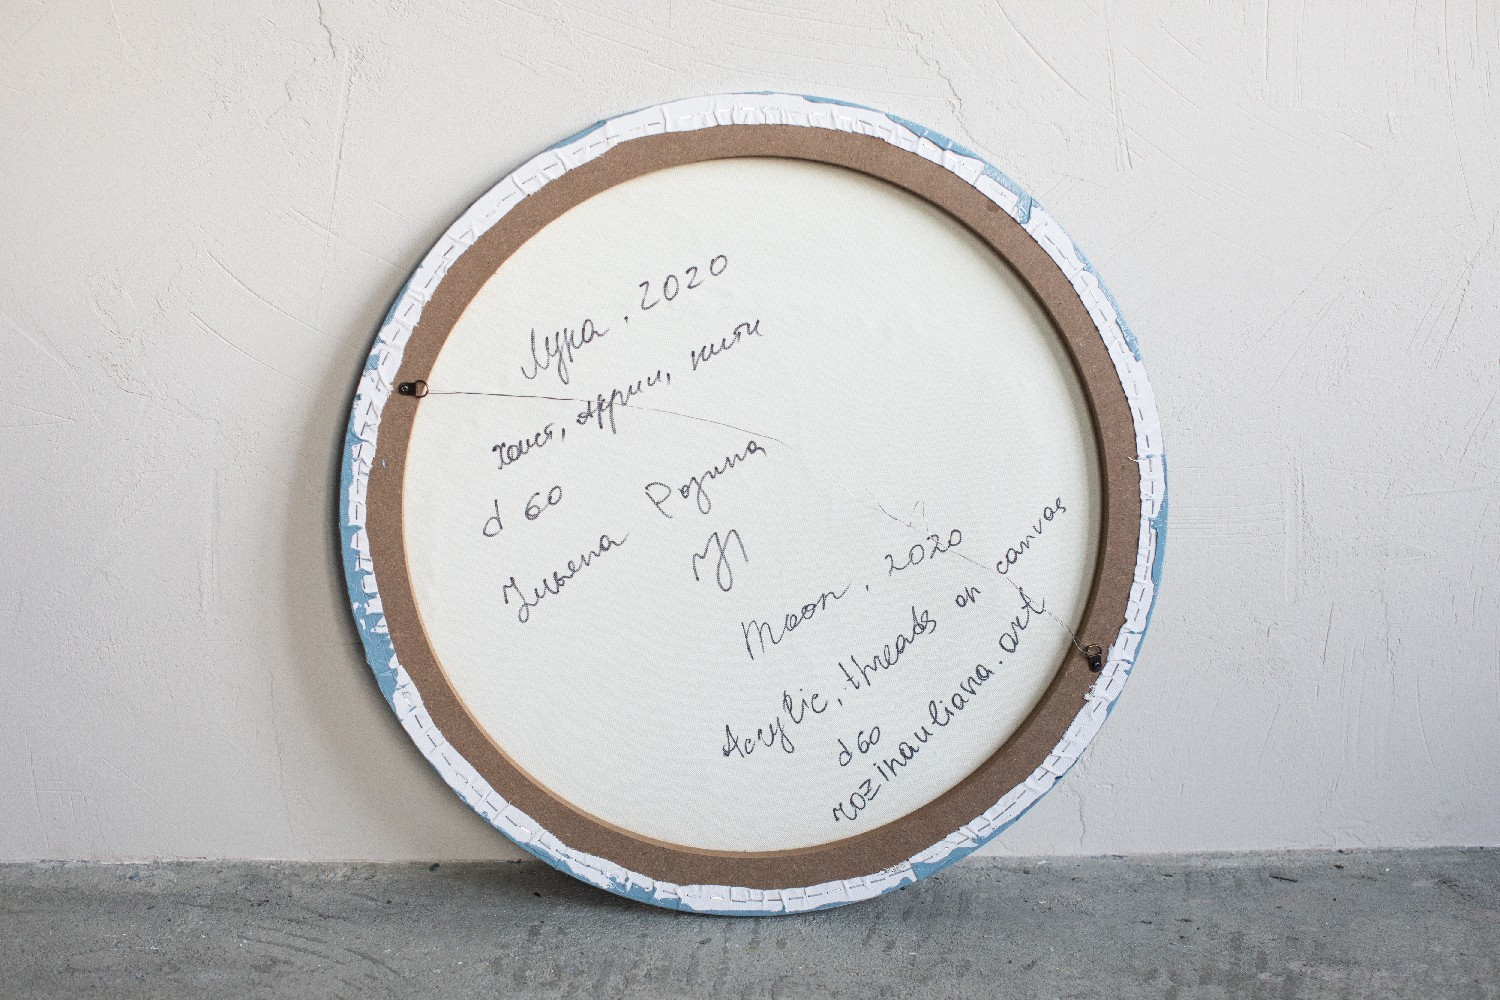 Луна, 2020
Холст, Акрил, нити
d 60
Ульяна Розина
Moon, 2020
Acrylic, threads on canvas
d60
rozinauliana.art